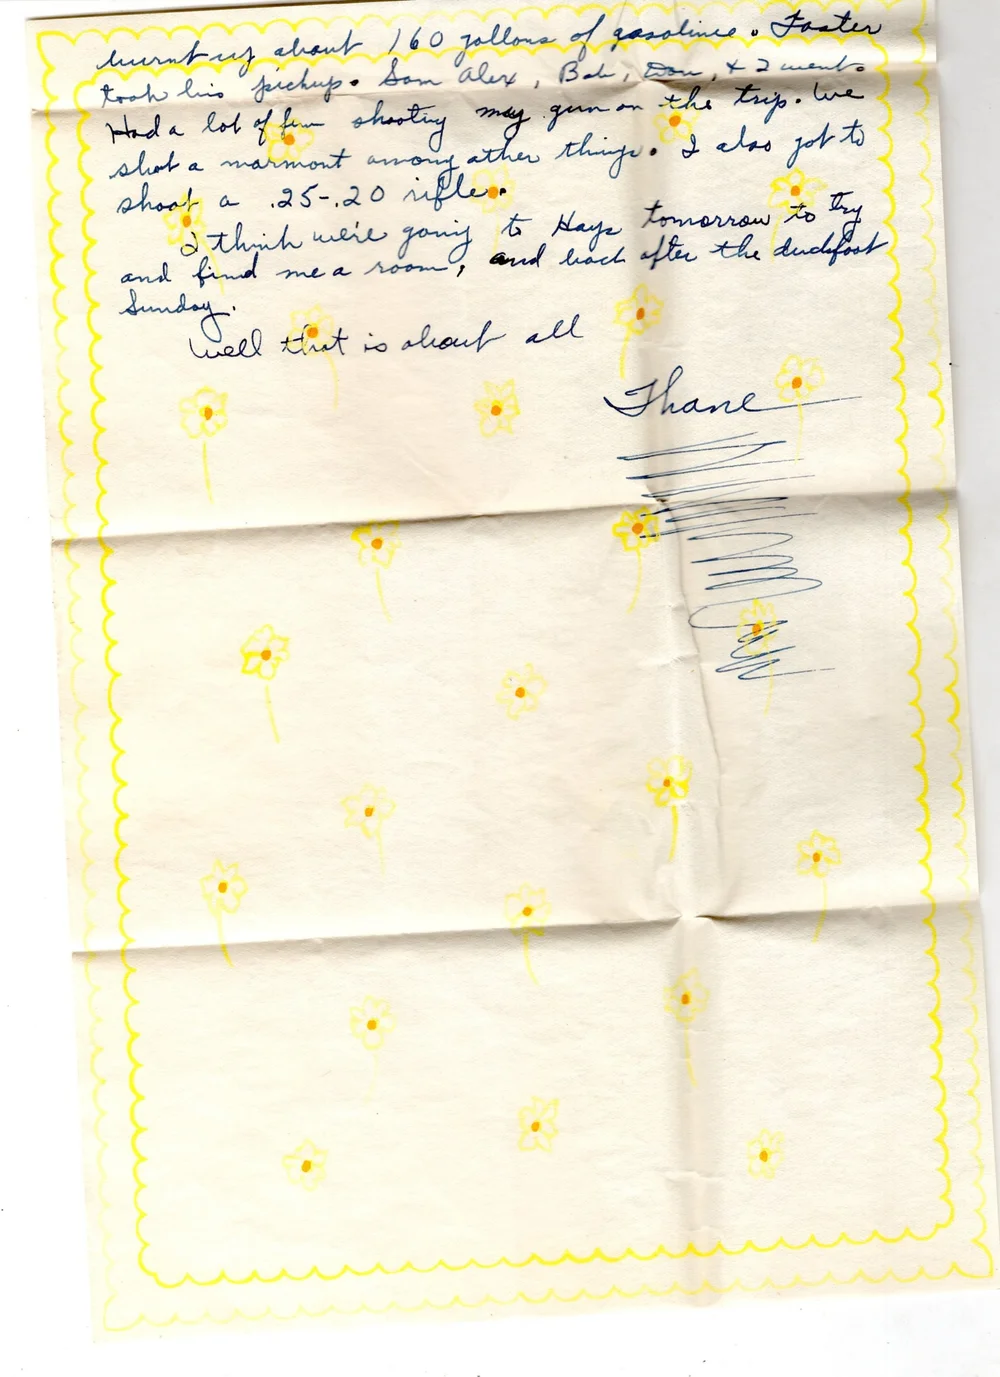 burnt up about 160 gallons of gasoline. Foster
took his pickup. Sam Alex, Bob, Don, & I went.
Had a lot of fun shooting my gun on the trip. We
shot a marmont among other things. I also got to
shoot a .25-.20 rifle.
I think we're going to Hays tomorrow to try
and find me a room, and back after the duckfoot
Sunday.
Well that is about all
Thane